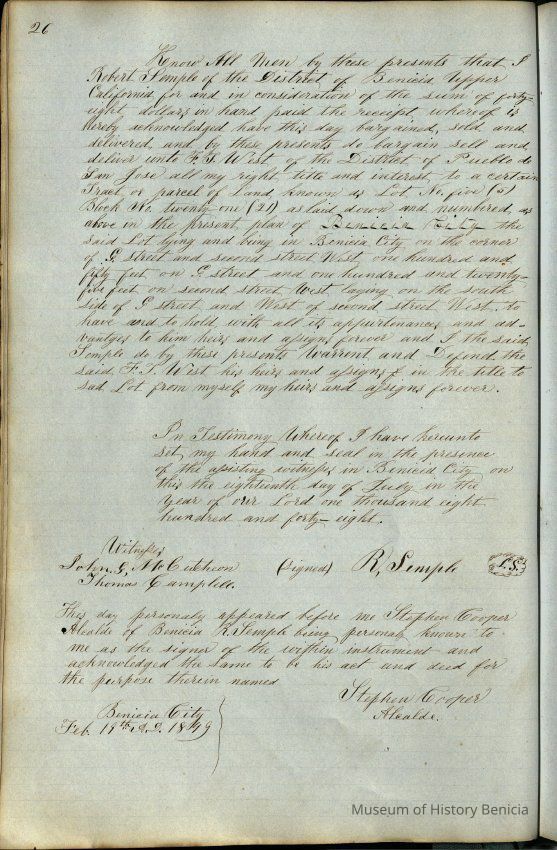 26
Know All Men by these presents that I
Robert Semple of the District of Benicia Upper
California for and in consideration of the sum of forty-
eight dollars in hand paid the receipt whereof is
hereby acknowledged have this day bargained, sold and
delivered, and by these presents do bargain sell and
deliver unto F. T. West of the District of Pueblo de
San Jose all my right title and interest to a certain
Tract or parcel of Land, known as Lot No. five (5)
Block No. twenty-one (21) as laid down and numbered, as
above in the present plan of Benicia City the
said Lot lying and being in Benicia City on the corner
of G. street and second street West one hundred and
fifty feet on G. street and one hundred and twenty-
five feet on second street West laying on the south
side of G street and West of second street West. to
have and to hold with all its appurtinances and ad-
vantages to him heirs and assigns forever and I the said
Semple do by these presents Warrent and Defend the
said F. T. West his heirs and assigns in the title to
sad Lot from myself my heirs and assigns forever.
In Testimony Whereof I have hereunto
set my hand and seal in the presence
of the assisting witnesses in Benicia City on
this the eighteenth day of July in the
year of our Lord one thousand eight
hundred and forty-eight.
Witnesses
John G. McCutcheon (signed) R, Semple L.S.
Thomas Campbell.
This day personaly appeared before me Stephen Cooper
Alcalde of Benicia R. Semple being personaly known to
me as the signor of the within instrument and
acknowledged the same to be his act and deed for
the purpose therein named
Stephen Cooper
Alcalde.
Benicia City
Feb. 19th A.D. 1849
Museum of History Benicia